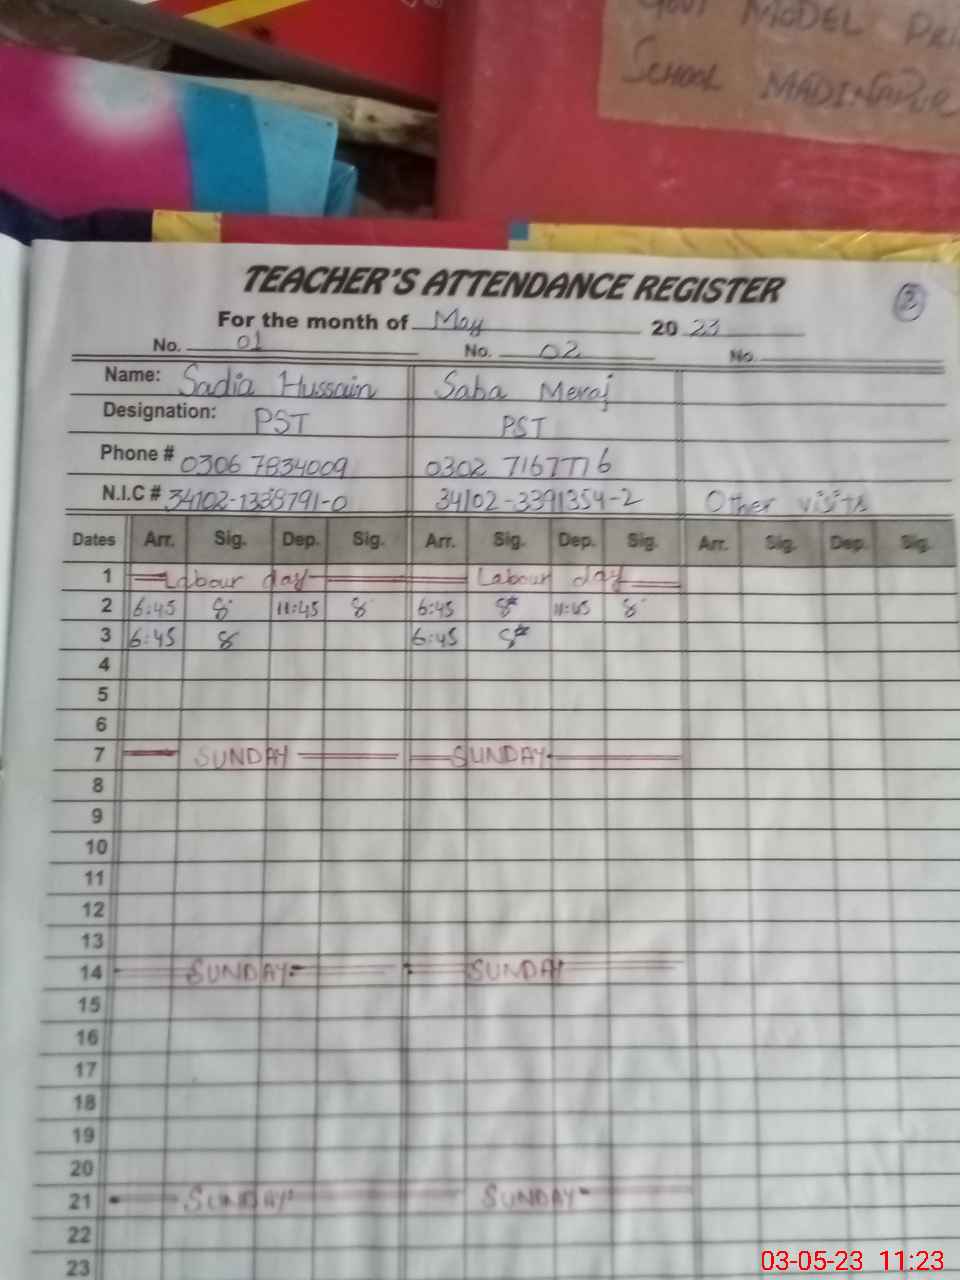 GOVT MODEL PRI
SCHOOL MADINAPUR
TEACHER'S ATTENDANCE REGISTER
2
For the month of May 2023
No. 01 No. 02 No.
Name: Sadia Hussain Saba Meraj
Designation: PST PST
Phone # 0306 7834009 0302 7167776
N.I.C # 34102-1338791-0 34102-3391354-2 Other visits
Dates Arr. Sig. Dep. Sig. Arr. Sig. Dep. Sig. Arr. Sig. Dep. Sig.
1 Labour day Labour day
2 6:45 11:45 6:45 11:45
3 6:45 6:45
4
5
6
7 SUNDAY SUNDAY
8
9
10
11
12
13
14 SUNDAY SUNDAY
15
16
17
18
19
20
21 SUNDAY SUNDAY
22
23
03-05-23 11:23